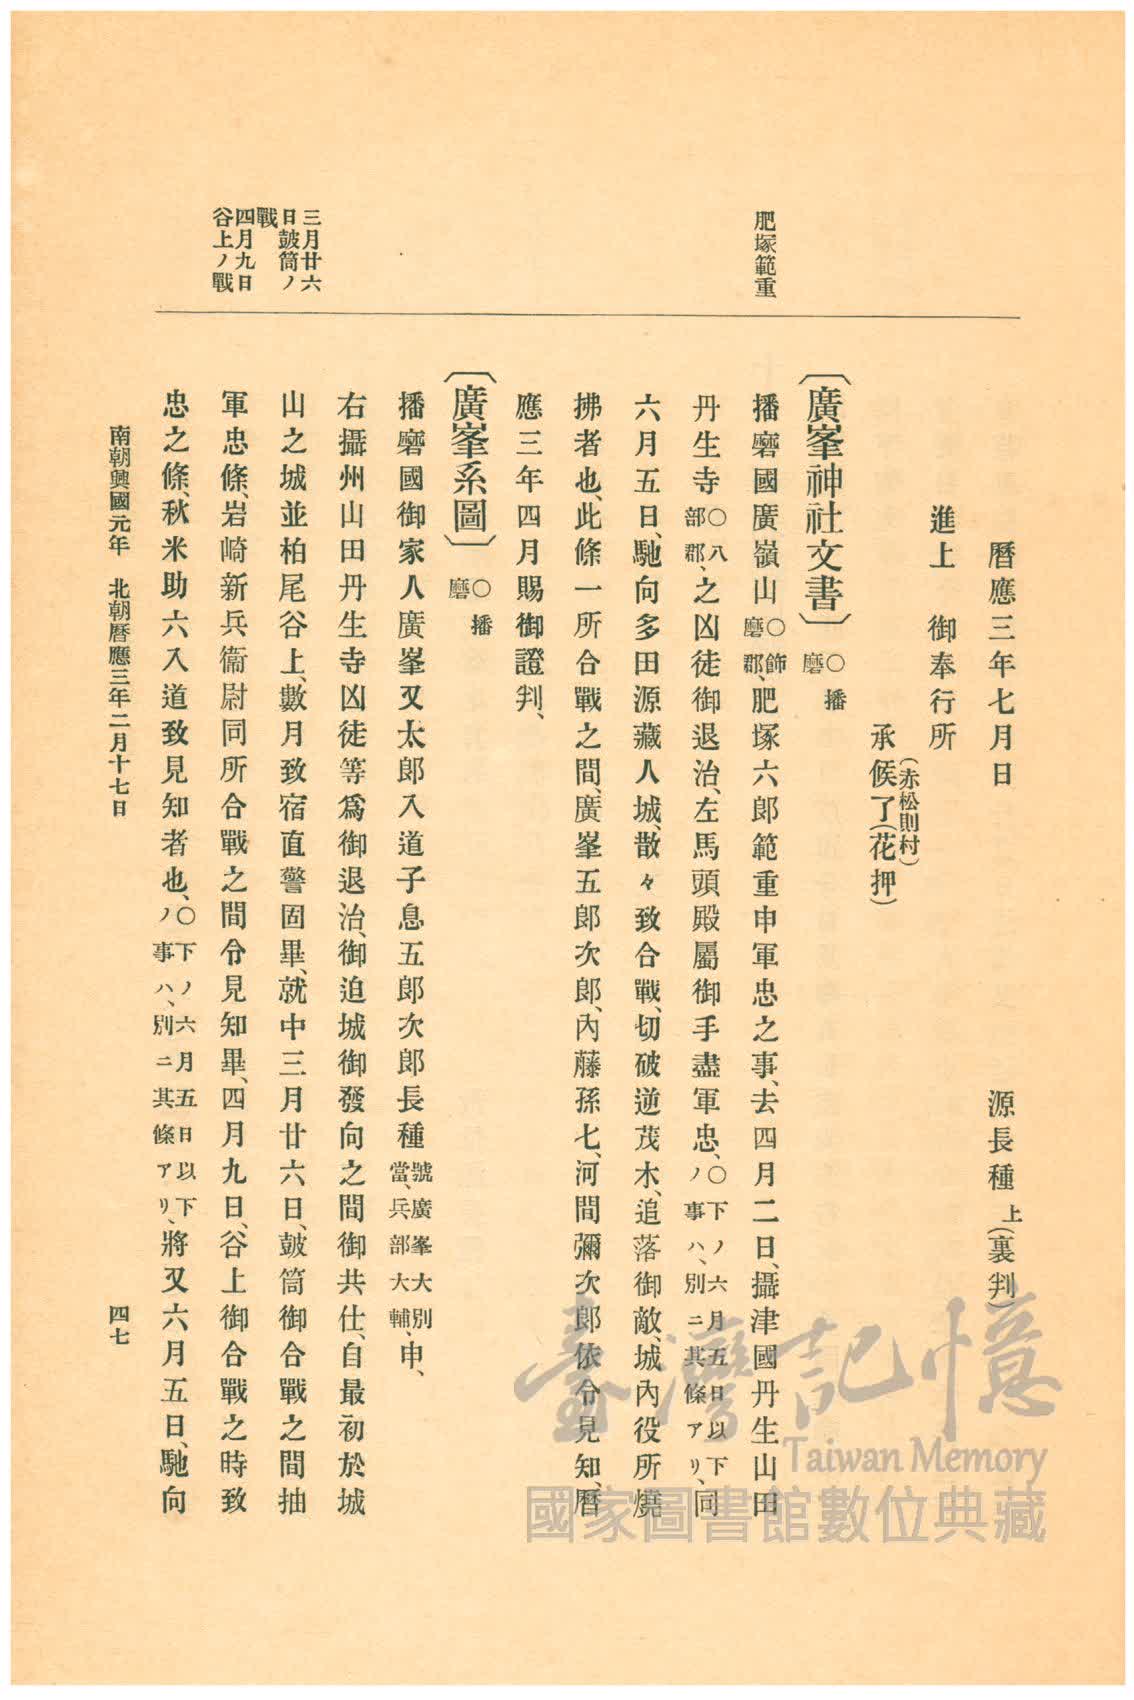 肥塚範重
三月廿六
日皷筒ノ
戰
四月九日
谷上ノ戰
曆應三年七月日　源長種上(裏判)
進上　御奉行所
(赤松則村)
承候了(花押)
〔廣峯神社文書〕○播磨
播磨國廣嶺山○飾磨郡、肥塚六郎範重申軍忠之事、去四月二日、攝津國丹生山田
丹生寺○八部郡、之凶徒御退治、左馬頭殿屬御手盡軍忠、○下ノ六月五日以下ノ事ハ、別ニ其條アリ、同
六月五日、馳向多田源藏人城、散々致合戰、切破逆茂木、追落御敵、城內役所燒
拂者也、此條一所合戰之間、廣峯五郎次郎、內藤孫七、河間彌次郎依令見知、曆
應三年四月賜御證判、
〔廣峯系圖〕○播磨
播磨國御家人廣峯又太郎入道子息五郎次郎長種號廣峯大別當、兵部大輔、申、
右攝州山田丹生寺凶徒等爲御退治、御迫城御發向之間御共仕、自最初於城
山之城並柏尾谷上、數月致宿直警固畢、就中三月廿六日、皷筒御合戰之間抽
軍忠條、岩崎新兵衞尉同所合戰之間令見知畢、四月九日、谷上御合戰之時致
忠之條、秋米助六入道致見知者也、○下ノ六月五日以下ノ事ハ、別ニ其條アリ、將又六月五日、馳向
南朝興國元年　北朝曆應三年二月十七日　四七
臺灣記憶
Taiwan Memory
國家圖書館數位典藏